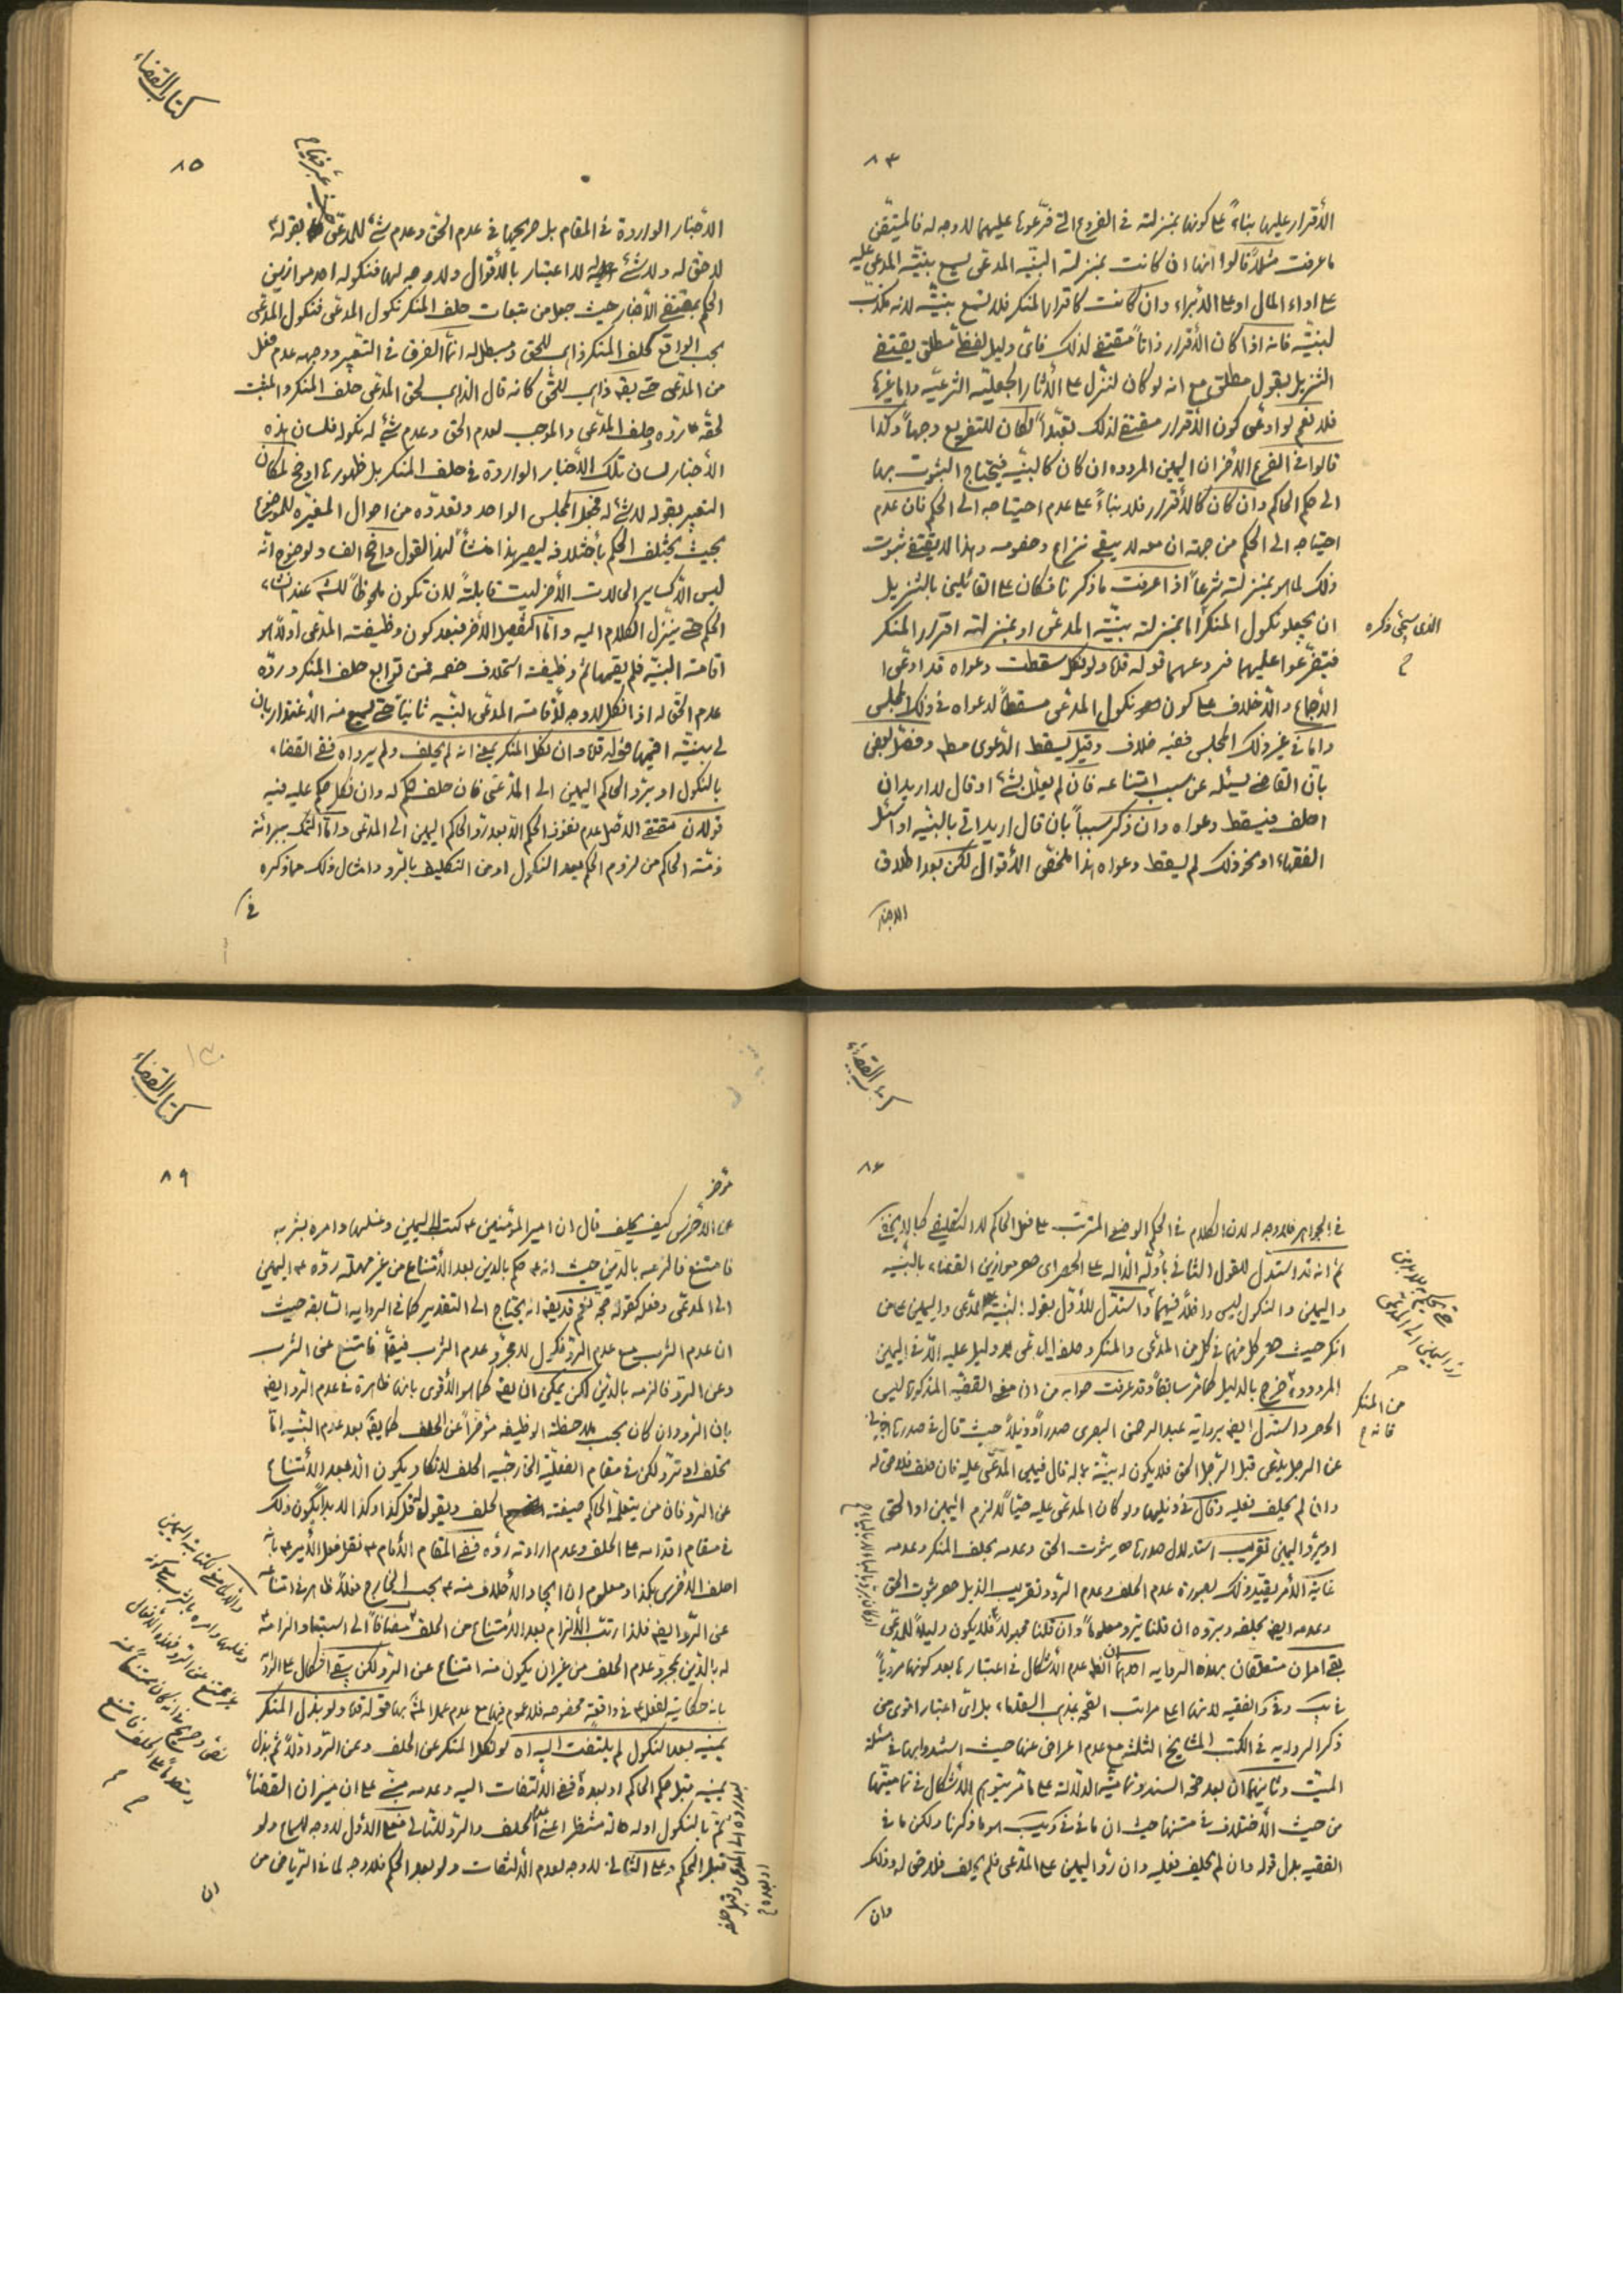 ٨٣
الأقرار عليها بناءً على كونها بمنزلته في الفروع التي فرّعوها عليهما لا وجه له فالمتيقن
ما عرفت مثلاً قالوا انها ان كانت بمنزلة البيّنه المدعى يسمع بينة المدعى عليه
على اداء المال او على الأبراء وان كانت كاقرار المنكر فلا تسمع بينته لانه مكذب
لبينته فانه اذا كان الأقرار ذاتاً مقتضٍ لذلك فاى دليل لفظى مطلق يقتضى
التنزيل بقول مطلق مع انه لو كان لتنزل على الآثار الجعليّه الشرعيّه واما غيرها
فلا نعم لو ادعى كون الأقرار مقتضٍ لذلك تعبّداً لكان للتفريع وجهاً وكذا
قالوا في الفرع الآخر ان اليمين المردوده ان كان كالبينه فيحتاج الثبوت بها
الى حكم الحاكم وان كان كالأقرار فلا بناءً على عدم احتياجه الى الحكم فان عدم
احتياجه الى الحكم من جهته ان معه لا يبقى نزاع وخصومه وهذا لا يقتضى ثبوت
ذلك لما هو بمنزلته شرعاً اذا عرفت ما ذكرنا فكان على القائلين بالتنزيل
ان يجعلو نكول المنكر اما بمنزلته بيّنة المدعى او بمنزلته اقرار المنكر
الذى سيجئ ذكره
فيتفرّعوا عليهما فروعهما قوله قده ولو نكل سقطت دعواه قد ادعى
الأجماع والأخلاف على كون نكول المدعى مسقطاً لدعواه في ذلك المجلس
واما في غير ذلك المجلس ففيه خلاف وقيل يسقط الدعوى مطلقا وفصّل بعض
بان القاضى يسئله عن سبب امتناعه فان لم يعلل بشئ او قال لا اريد ان
احلف فيسقط دعواه وان ذكر سبباً بان قال اريد اتى بالبينه او اسئل
الفقهاء او نحو ذلك لم يسقط دعواه هذا ملخص الأقوال لكن بعد اطلاق
الاخبار
كتاب القضاء
٨٥
الأخبار الواردة في المقام بل صريحها في عدم الحق وعدم شئ للمدعى بقوله
لا حق له ولا شئ له لا اعتبار بالأقوال ولا وجه لها فنكوله احد موازين
الحكم بمقتضى الأخبار حيث جعل من تبعات حلف المنكر نكول المدعى فنكول المدعى
بحب الواقع كحلف المنكر ذاهب للحق ومبطل له انما الفرق في التعبير ووجهه عدم فعل
من المدعى حتى يقع ذاهب للحق كانه قال الذاهب لحق المدعى حلف المنكر والمثبت
لحقه ردّه وحلف المدعى والموجب لعدم الحق وعدم شئ له نكوله فلسان هذه
الأخبار لسان تلك الأخبار الواردة في حلف المنكر بل ظهورها اوضح لمكان
التعبير بقوله لا شئ له فجعل المجلس الواحد وتعدده من احوال المغيّره للموضوع
بحيث يختلف الحكم بأختلافه ليصير هذا منشأ لهذا القول واضح الفساد لوضوح انه
ليس الا كساير الحالات الأخر ليست قابلةً لان تكون ملحوظاً للشك عند انشاء
الحكم حتى ينزل الكلام اليه واما التفصيل الأخر فبعد كون وظيفته المدعى اولاً هو
اقامته البينه فلم يقيمها ثم وظيفته استحلاف خصمه فمن توابع حلف المنكر وردّه
عدم الحق له اذا نكل لا وجه لأقامته المدعى البينه ثانياً حتى يسمع منه الأعتذار بان
لي بينته اقيمها قوله قده وان نكل المنكر بمعنى انه لم يحلف ولم يرد اه ففى القضاء
بالنكول او يرد الحاكم اليمين الى المدعى فان حلف حكم له وان نكل حكم عليه فيه
قولان مقتضى الأصل عدم نفوذ الحكم الا بعد رد الحاكم اليمين الى المدعى واما التمسك ببرائة
ذمته الحاكم من لزوم الحكم بعد النكول او من التكليف بالرد وامثال ذلك مما ذكره
في
كتاب القضاء
٨٦
في الجواهر فلا وجه له لان الكلام في الحكم الوضعى المترتب على فعل الحاكم لا التكليفى كما لا يخفى
ثم انه قد استدل للقول الثانى بأدلة الدالة على الحصر اى حصر موازين القضاء بالبينه
واليمين والنكول ليس داخلاً فيهما واستدل للأول بقوله البينة على المدعى واليمين على من
انكر حيث حصر كل منهما في كل من المدعى والمنكر وحلف المدعى لا دليل عليه الا في اليمين
المردودة خرج بالدليل كما مر سابقاً وقد عرفت جوابه من ان القضيه المذكورة ليس
من المنكر فانه
الحصر واستدل ايضا برواية عبد الرحمن البصرى صدراً وذيلاً حيث قال في صدرها
عن الرجل يدعى قبل الرجل الحق فلا يكون له بينة بماله قال فيمين المدعى عليه فان حلف فلا حق له
وان لم يحلف فعليه وقال في ذيلها ولو كان المدعى عليه حيّاً لالزم اليمين او الحق
او يرد اليمين تقريب استدلال صدرها ثبوت الحق وعدمه بحلف المنكر وعدمه
غاية الأمر يقيد ذلك بصورة عدم الحلف وعدم الرد وتقريب الذيل حصر ثبوت الحق
وعدمه ايضا بحلفه وبردّه ان قلنا يرد معلوماً وان قلنا مجهولاً فلا يكون دليلاً للمدعى
بقى امران متعلقان بهذه الروايه احدهما عدم الأشكال في اعتبارها بعد كونها مرويّاً
في يب وفى الفقيه لانها اعلى مراتب الصحه بمذهب القدماء بل اى اعتبار اقوى من
ذكر الرواية في الكتب المشايخ الثلثة مع عدم اعراض عنها حيث استدلوا بها في مسئلة
الميت وثانيهما ان بعد صحة السند وتماميّة الدلالة على ما مر يتوهم الأشكال في تماميتها
من حيث الأختلاف في متنها حيث ان ما في في ويب هو ما ذكرنا ولكن ما في
الفقيه بدل قوله وان لم يحلف فعليه وان رد اليمين على المدعى فلم يحلف فلا حق له وذلك
وان
كتاب القضاء
٨٩
عن الأخرس كيف يحلف قال ان امير المؤمنين ع كتب له اليمين وغسلها وامره بشربه
فامتنع فالزمه بالدّين حيث انه ع حكم بالدين بعد الأمتناع من غير مهلة ردّه ع اليمين
الى المدعى وفعله كقوله حجّه نعم قد يقال انه يحتاج الى التقدير كما في الرواية السابقه حيث
ان عدم الشرب مع عدم الرد نكول لا مجرد عدم الشرب فيقدّر فامتنع عن الشرب
وعن الرد فالزمه بالدّين لكن يمكن ان يقال كما هو الأقوى بانها ظاهرة في عدم الرد ايضا
بان الرد وان كان بحسب ملاحظة الوظيفه مؤخراً عن الحلف كما يقال بعد عدم البينه امّا
تحلف او ترد ولكن في مقام الفعليّه الخارجيه الحلف للانكار يكون الا بعد الأمتناع
عن الرد فان من يتعلمه الحاكم صيغته الحلف ويقول له قل كذا وكذا لا بد ان يكون ذلك
في مقام اقدامه على الحلف وعدم ارادته ردّه ففى المقام الأمام ع نقل فعل الأمير ع بانه
احلف الأخرس هكذا ومعلوم ان ايجاد الأحلاف منه ع بحسب الخارج فعلاً ظاهر في امتناعه
عن الرد ايضا فلذا رتب الألزام بعد الأمتناع من الحلف مضافاً الى استبعاد الزامه
له بالدّين بمجرد عدم الحلف من غير ان يكون منه امتناع عن الرد لكن بقى اشكال على الرواية
بانه حكاية لفعله ع في واقعة مخصوصه فلا عموم فيها مع عدم عمل المشهور بها قوله قده ولو بذل المنكر
يمينه بعد النكول لم يلتفت اليه اه لو نكل المنكر عن الحلف وعن الرد اولاً ثم بذل
يمينه قبل حكم الحاكم او بعده ففى الألتفات اليه وعدمه مبنى على ان ميزان القضاء
تم بالنكول اوله حالة منتظرا عنى الحلف والرد للثانى فعلى الأول لا وجه للسماع ولو
قبل الحكم وعلى الثانى لا وجه لعدم الألتفات ولو بعد الحكم فلا وجه لما في الرياض من
ان